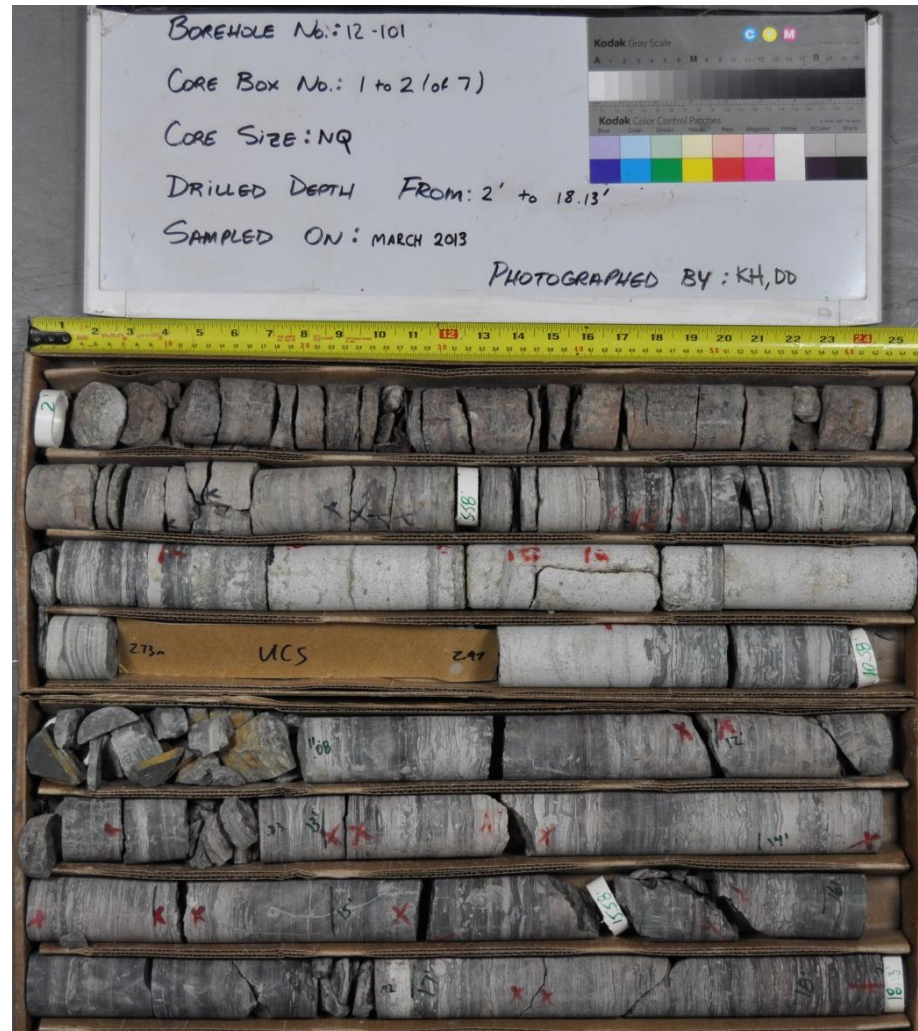 BOREHOLE No.: 12-101
CORE BOX No.: 1 to 2 (of 7)
CORE SIZE: NQ
DRILLED DEPTH FROM: 2' to 18.13'
SAMPLED ON: MARCH 2013
PHOTOGRAPHED BY: KH, DD
Kodak Gray Scale
C Y M
A 1 2 3 4 5 6 M 8 9 10 11 12 13 14 15 B 17 18 19
Kodak Color Control Patches
Blue Cyan Green Yellow Red Magenta White 3/Color Black
1 2 3 4 5 6 7 8 9 10 11 12 13 14 15 16 17 18 19 20 21 22 23 24 25
2'
5.58
2.73m UCS 2.97
10.58'
11.08
12'
13'
14'
15'
15.58'
16'
17'
18'
18.3'